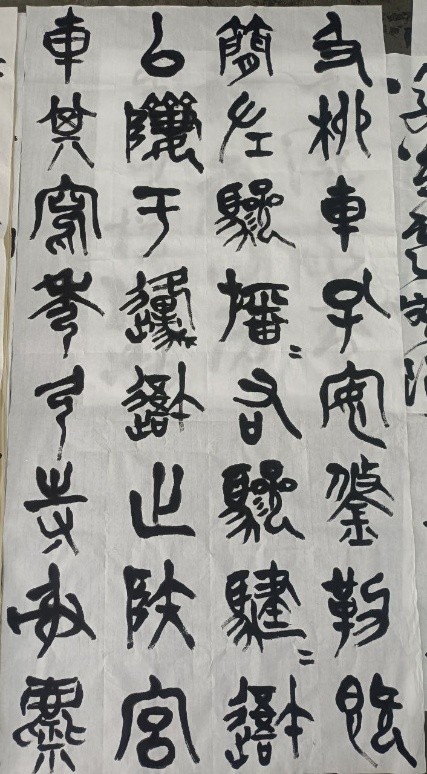 車孔安鋚勒
簡左驂旛=右驂騝=
以隮于邍止陝宮
車其寫秀弓寺射麋